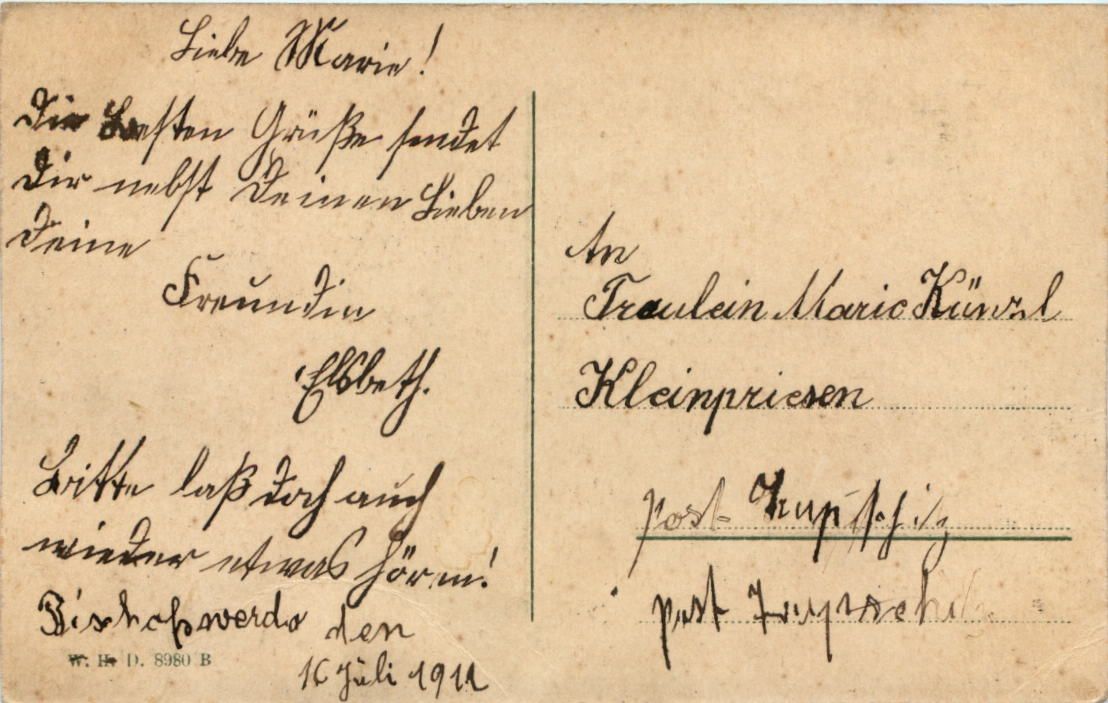 Liebe Marie!
Die besten Grüße sendet
Dir nebst Deinen Lieben
Deine
Freundin
Elsbeth.
Bitte laß doch auch
wieder etwas hören!
Bischofswerda den
16 Juli 1911
W. H. D. 8980 B
An
Fraulein Marie
Kleinpriesen
Post
post